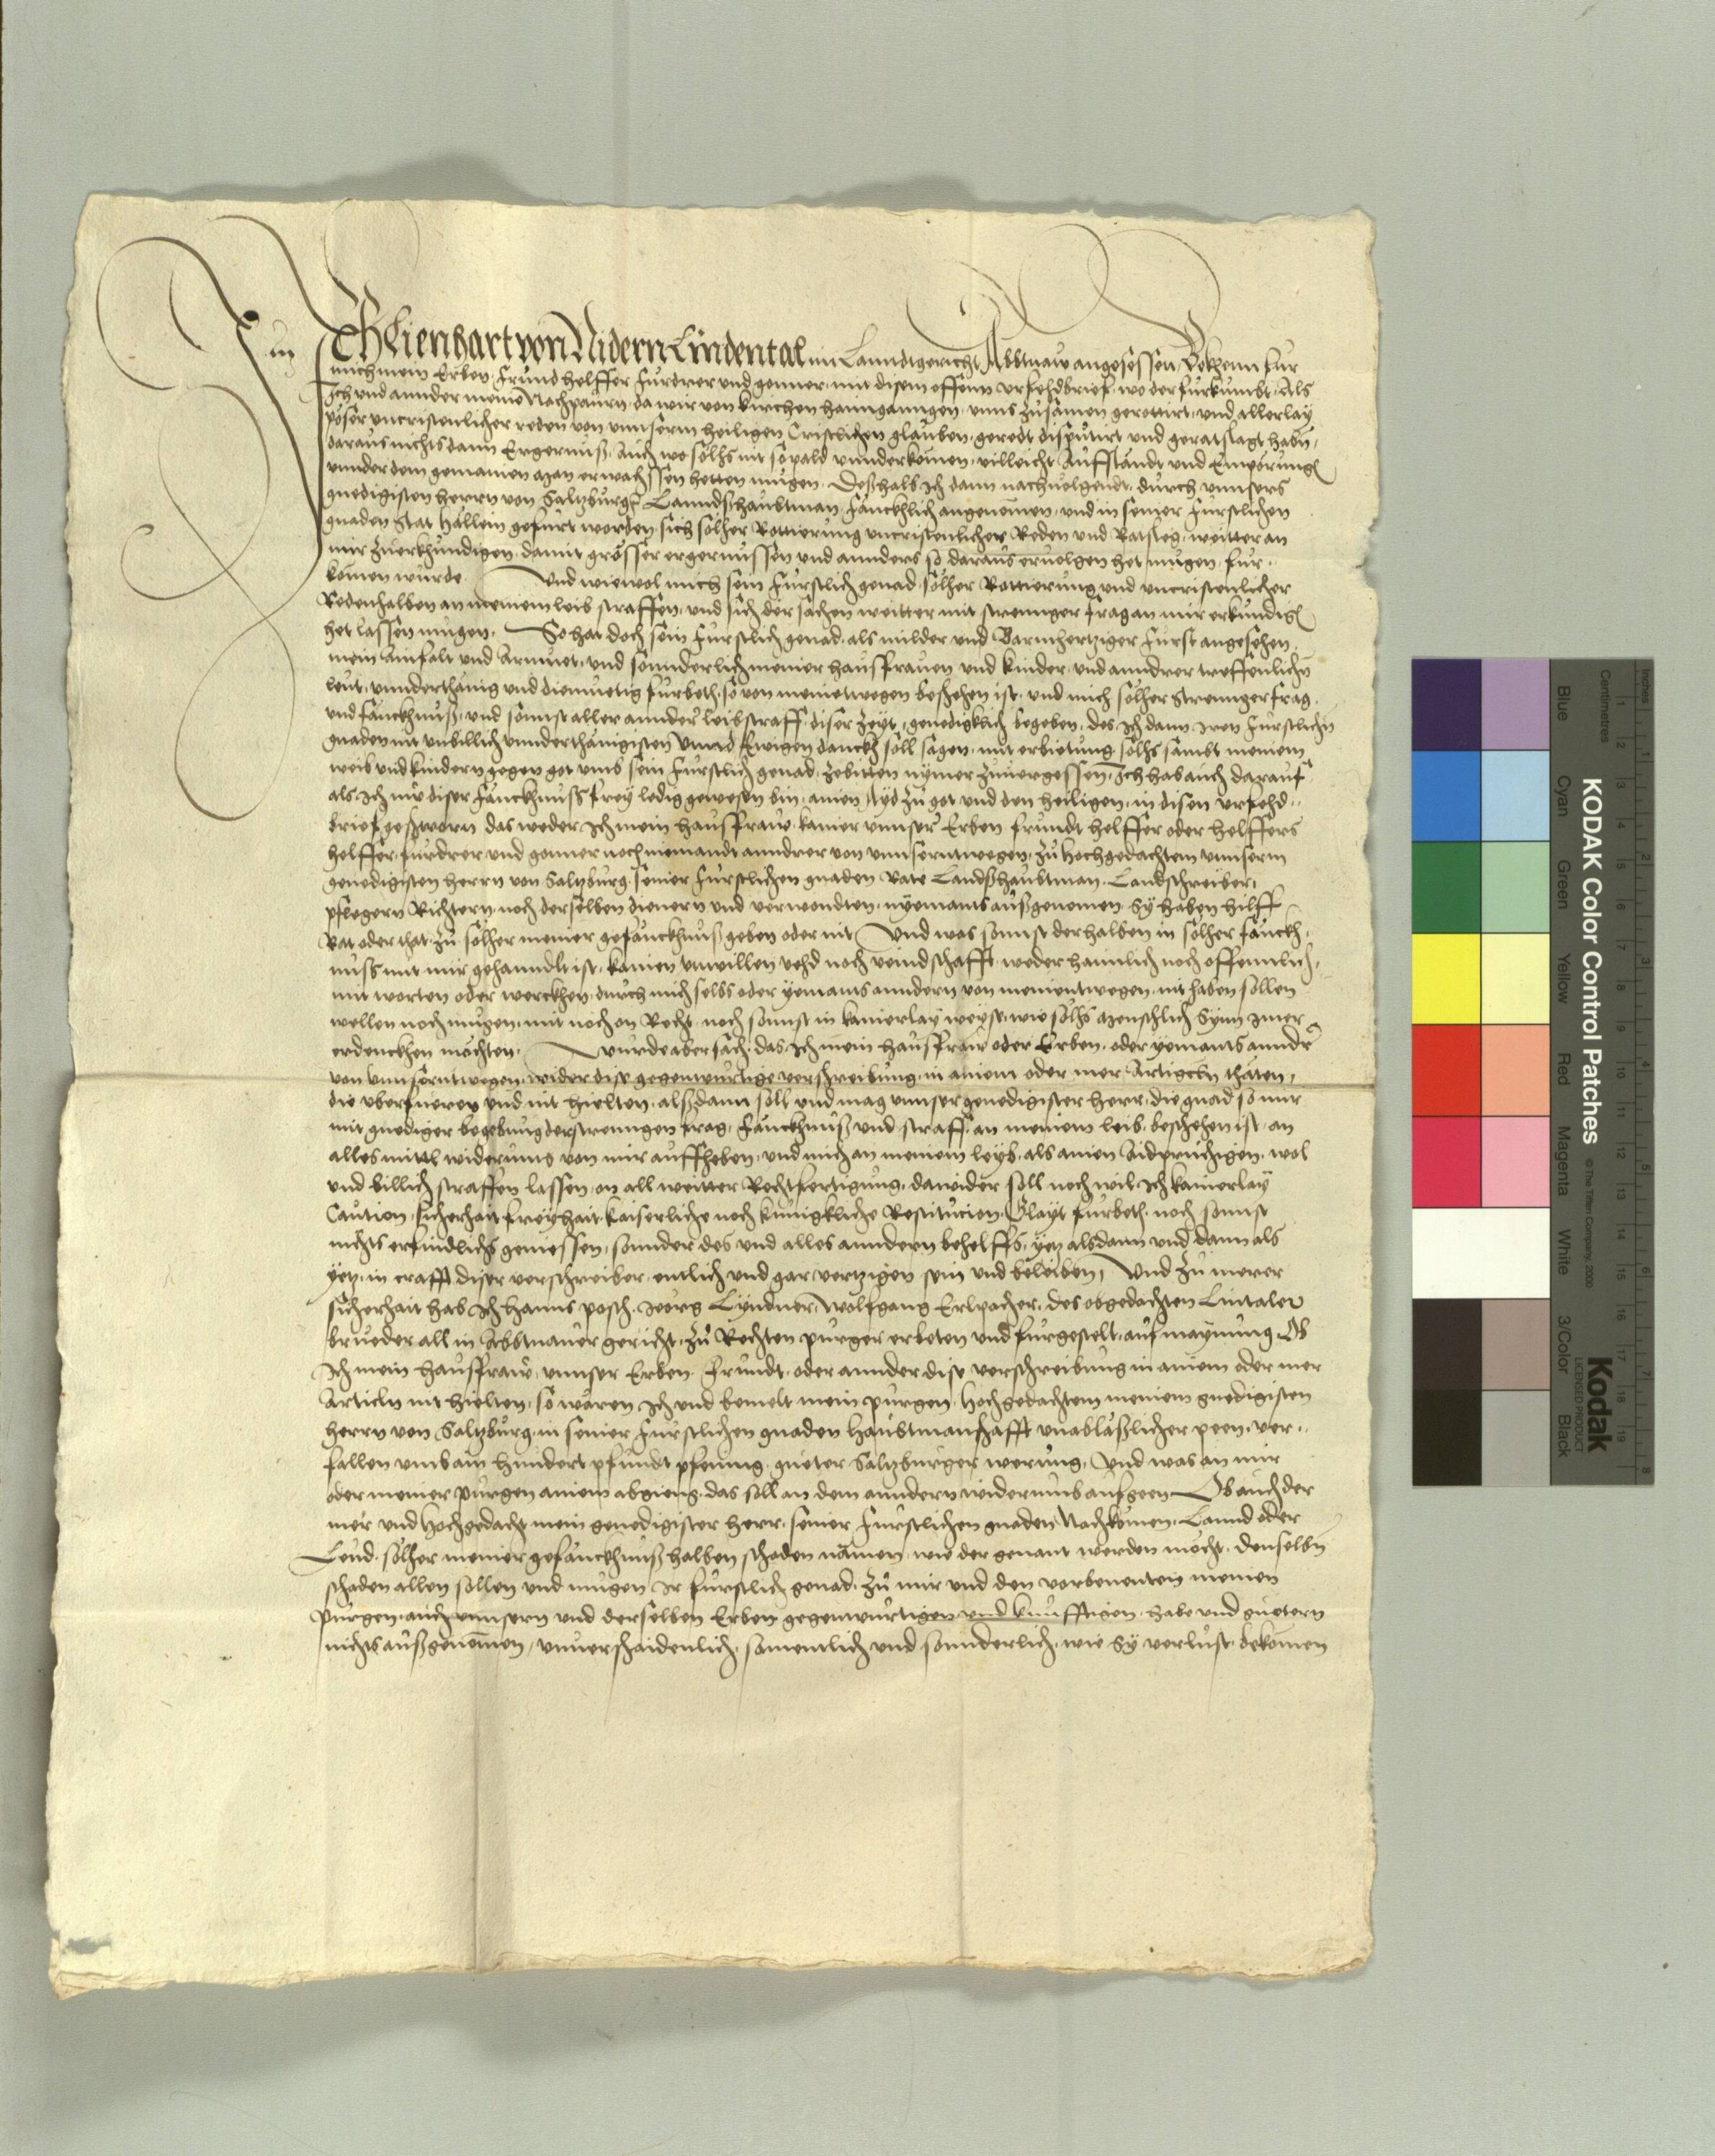 Ich Lienhart von Nidern Lindental im Lanndtgericht Abbtnaw angesessen, Bekenn fur
mich mein Erben, frund helffer furdrer und gonner, mit disem offenn vrfehdbrief, wo der furkumbt, Als
Ich vnd annder meine Nachpaurn, da wir von kirchen haimganngen, vnns zusamen gerottirt, vnd allerlay
pöser vncristenlicher reden von vnnserm heiligen Cristlichen glauben, geredt disputirt vnd geratslagt habn,
daraus nichts dann Ergernuß, Auch wo solhs nit so pald vnnderkomen, villeicht Aufstandt vnd Emporung
vnnder dem gemainen man erwachssen hetten mugen. Deßhalb Ich dann nachuolgendt, durch vnnsers
gnedigisten herrn von Saltzburg Lanndßhaubtman fanckhlich angenomen, vnd in seiner furstlichen
gnaden Stat Hallein gefurt worden, sich solher Rottierung vncristenlicher Reden vnd Ratsleg, weitter an
mir zuerkhundigen, damit grösser ergernussen vnd annders so daraus eruolgen het mugen, fur-
komen wurde. Vnd wiewol mich sein furstlich genad, solher Rottierung vnd vncristenlicher
Reden halben an meinem leib straffen, vnd sich der sachen weitter mit strennger frag an mir erkundig
het lassen mugen. So hat doch sein furstlich genad, als milder vnd Barmhertziger furst angesehen
mein Ainfalt vnd Armuet, vnd sonnderlich meiner hausfrauen vnd kinder, vnd anndrer treffenlichn
leut, vnnderthänig vnd diemuetig furbeth, so von meinetwegen beschehen ist, vnd mich solher strennger frag
vnd fanckhnuß, vnd sonnst aller annder leibstraff, diser zeyt, genedigklich begeben, des Ich dann Iren furstlichn
gnaden nit vnbillich vnnderthänigisten vnnd Ewigen danckh soll sagen, mit erbietung, solhs sambt meinem
weib vnd kindern gegen got vmb sein furstlich genad, zebitten nymer zuuergessen, Ich hab auch darauf
als Ich nu diser fanckhnuss frey ledig gewesen bin, ainen Ayd zu got vnd den heiligen, in disen vrfehd-
brief geschworn, das weder Ich mein hausfraw, kainer vnnser Erben, frundt helffer oder helffers
helffer, furdrer vnd gonner noch niemandt anndrer von vnnserntwegen, zu hochgedachtem vnnserm
genedigisten herrn von Saltzburg, seiner furstlichen gnaden Rate Landßhaubtman, Landschreiber,
pflegern Richtern, noch derselben dienern vnd verwondten, nyemants außgenomen, Sy haben hilff
Rat oder that, zu solher meiner gefanckhnuß geben oder nit, Vnd was sonnst derhalben in solher fanckh-
nuss mit mir gehanndlt ist, kainen vnwillen vehd noch veindschafft, weder haimlich noch offennlich,
mit worten oder werckhen, durch mich selbs oder yemants anndern von meinentwegen, nit haben sollen
wellen noch mugen, mit noch on Recht, noch sonnst in kainerlay weyse, wie solhs menschlich Synn Imer
erdenckhen mochten. Wurde aber sach, das Ich mein hausfraw oder Erben, oder yemants anndr
von vnnserntwegen, wider dise gegenwurtige verschreibung, in ainem oder mer Artigcln thäten,
die vberfueren vnd nit hielten, alßdann soll vnd mag vnnser genedigister herr, die gnad so mir
mit gnediger begebung der strenngen frag, fanckhnuß vnd straff, an meinem leib, beschehen ist, an
alles mittl widerumb von mir auffheben, vnd mich an meinem leyb, als ainen Aidpruchigen, wol
vnd billich straffen lassen, on all weitter Rechtfertigung, dawider soll noch wil Ich kainerlay
Caution, sicherhait freyhait, kaiserliche noch kunigkliche Restitucion, Glayt furbeth, noch sonnst
nichts erfindlichs geniessen, sonnder des vnd alles anndern behelffs, yetz alsdann vnd dann als
yetz, in crafft diser verschreiber, entlich vnd gar vertzigen sein vnd beleiben, Vnd zu merer
sicherhait hab Ich Hanns posch, Jeorg Lyndner, Wolfgang Erlpacher, des obgedachten Lintaler
brueder all in Abbtnauer gericht, zu Rechten purgen erbeten vnd furgestelt, auf maynung, Ob
Ich mein hausfraw, vnnser Erben, frundt, oder annder dise verschreibung in ainem oder mer
Articln nit hielten, so wären Ich vnd bemelt mein purgen, hochgedachtem meinem gnedigisten
herrn von Saltzburg, in seiner furstlichen gnaden haubtmanschafft vnabläßlicher peen, ver-
fallen vmb ain hundert pfundt pfennig, gueter Saltzburger werung, Vnd was an mir
oder meiner purgen ainem abgieng, das soll an dem anndern widerumb aufgeen, Ob auch der
mer vnd hochgedacht mein genedigister herr, seiner furstlichen gnaden Nachkomen, Lannd oder
Leud, solher meiner gefanckhnuß halben schaden nämen, wie der genant werden mocht, denselbn
schaden allen sollen vnd mugen Ir furstlich genad, zu mir vnd den vorbenenten meinen
purgen, auch vnnsern vnd derselben Erben gegenwurtigen vnd kunfftigen, habe vnd guetern
nichts außgenomen, vnuerschaidenlich, sameentlich vnd sonnderlich, wie Sy verlust, bekomen
KODAK Color Control Patches
© The Tiffen Company, 2000
Kodak
LICENSED PRODUCT
Blue Cyan Green Yellow Red Magenta White 3/Color Black
Centimetres
Inches